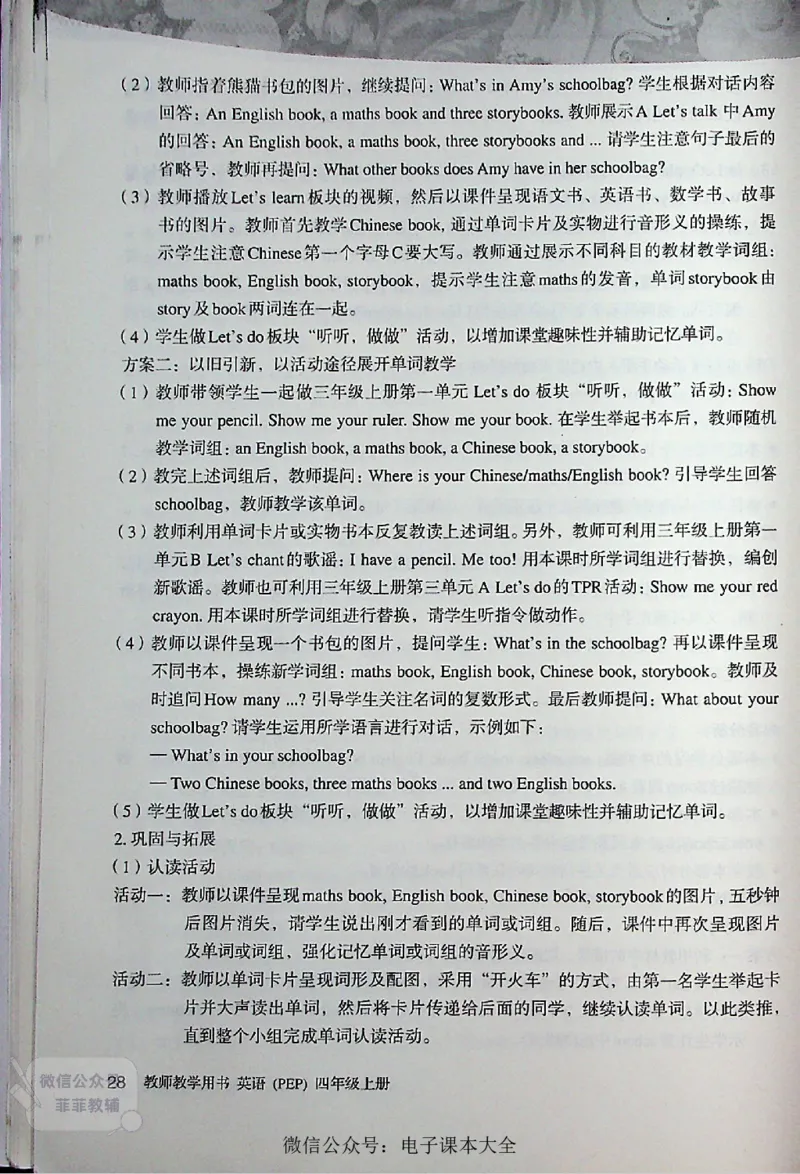 （2）教师指着熊猫书包的图片，继续提问：What's in Amy's schoolbag? 学生根据对话内容
回答：An English book, a maths book and three storybooks. 教师展示A Let's talk 中Amy
的回答：An English book, a maths book, three storybooks and ... 请学生注意句子最后的
省略号，教师再提问：What other books does Amy have in her schoolbag?
（3）教师播放Let's learn板块的视频，然后以课件呈现语文书、英语书、数学书、故事
书的图片。教师首先教学Chinese book, 通过单词卡片及实物进行音形义的操练，提
示学生注意Chinese第一个字母C要大写。教师通过展示不同科目的教材教学词组：
maths book, English book, storybook，提示学生注意maths的发音，单词storybook由
story及book两词连在一起。
（4）学生做Let's do板块“听听，做做”活动，以增加课堂趣味性并辅助记忆单词。
方案二：以旧引新，以活动途径展开单词教学
（1）教师带领学生一起做三年级上册第一单元 Let's do 板块“听听，做做”活动：Show
me your pencil. Show me your ruler. Show me your book. 在学生举起书本后，教师随机
教学词组：an English book, a maths book, a Chinese book, a storybook。
（2）教完上述词组后，教师提问：Where is your Chinese/maths/English book? 引导学生回答
schoolbag，教师教学该单词。
（3）教师利用单词卡片或实物书本反复教读上述词组。另外，教师可利用三年级上册第一
单元B Let's chant的歌谣：I have a pencil. Me too! 用本课时所学词组进行替换，编创
新歌谣。教师也可利用三年级上册第三单元 A Let's do的TPR活动：Show me your red
crayon. 用本课时所学词组进行替换，请学生听指令做动作。
（4）教师以课件呈现一个书包的图片，提问学生：What's in the schoolbag? 再以课件呈现
不同书本，操练新学词组：maths book, English book, Chinese book, storybook。教师及
时追问How many ...? 引导学生关注名词的复数形式。最后教师提问：What about your
schoolbag? 请学生运用所学语言进行对话，示例如下：
— What's in your schoolbag?
— Two Chinese books, three maths books ... and two English books.
（5）学生做Let's do板块“听听，做做”活动，以增加课堂趣味性并辅助记忆单词。
2. 巩固与拓展
（1）认读活动
活动一：教师以课件呈现maths book, English book, Chinese book, storybook的图片，五秒钟
后图片消失，请学生说出刚才看到的单词或词组。随后，课件中再次呈现图片
及单词或词组，强化记忆单词或词组的音形义。
活动二：教师以单词卡片呈现词形及配图，采用“开火车”的方式，由第一名学生举起卡
片并大声读出单词，然后将卡片传递给后面的同学，继续认读单词。以此类推，
直到整个小组完成单词认读活动。
微信公众号
菲菲教辅
28 教师教学用书 英语 (PEP) 四年级上册
微信公众号：电子课本大全